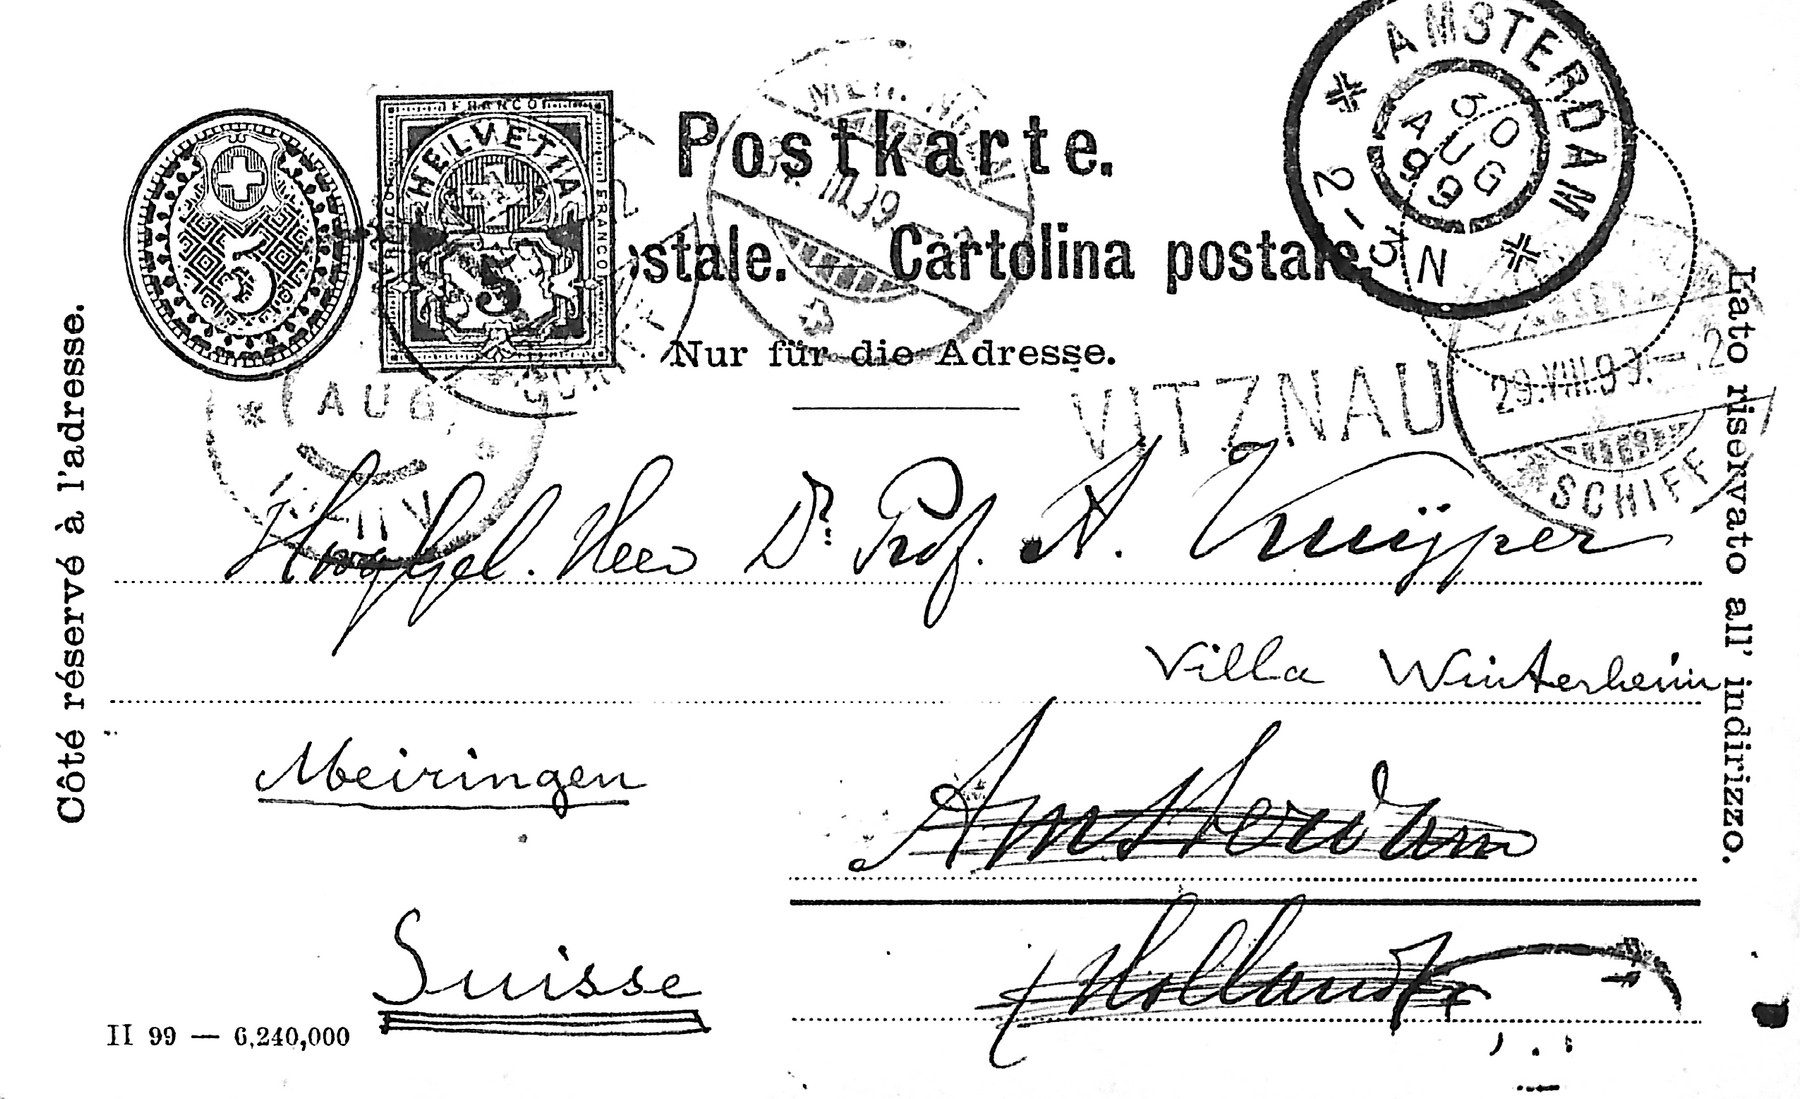 Postkarte.
ostale. Cartolina postale.
Nur für die Adresse.
Côté réservé à l'adresse.
Lato riservato all' indirizzo.
5
FRANCO
HELVETIA
5
AMSTERDAM
30
AUG
99
2-3 N
VITZNAU
29.VIII.99.
SCHIFF
AUG
Hoogel. Heer Dr. Prof. A. Kuijper
Villa Winterheim
Meiringen
Amsterdam
Suisse
Holland
II 99 — 6,240,000